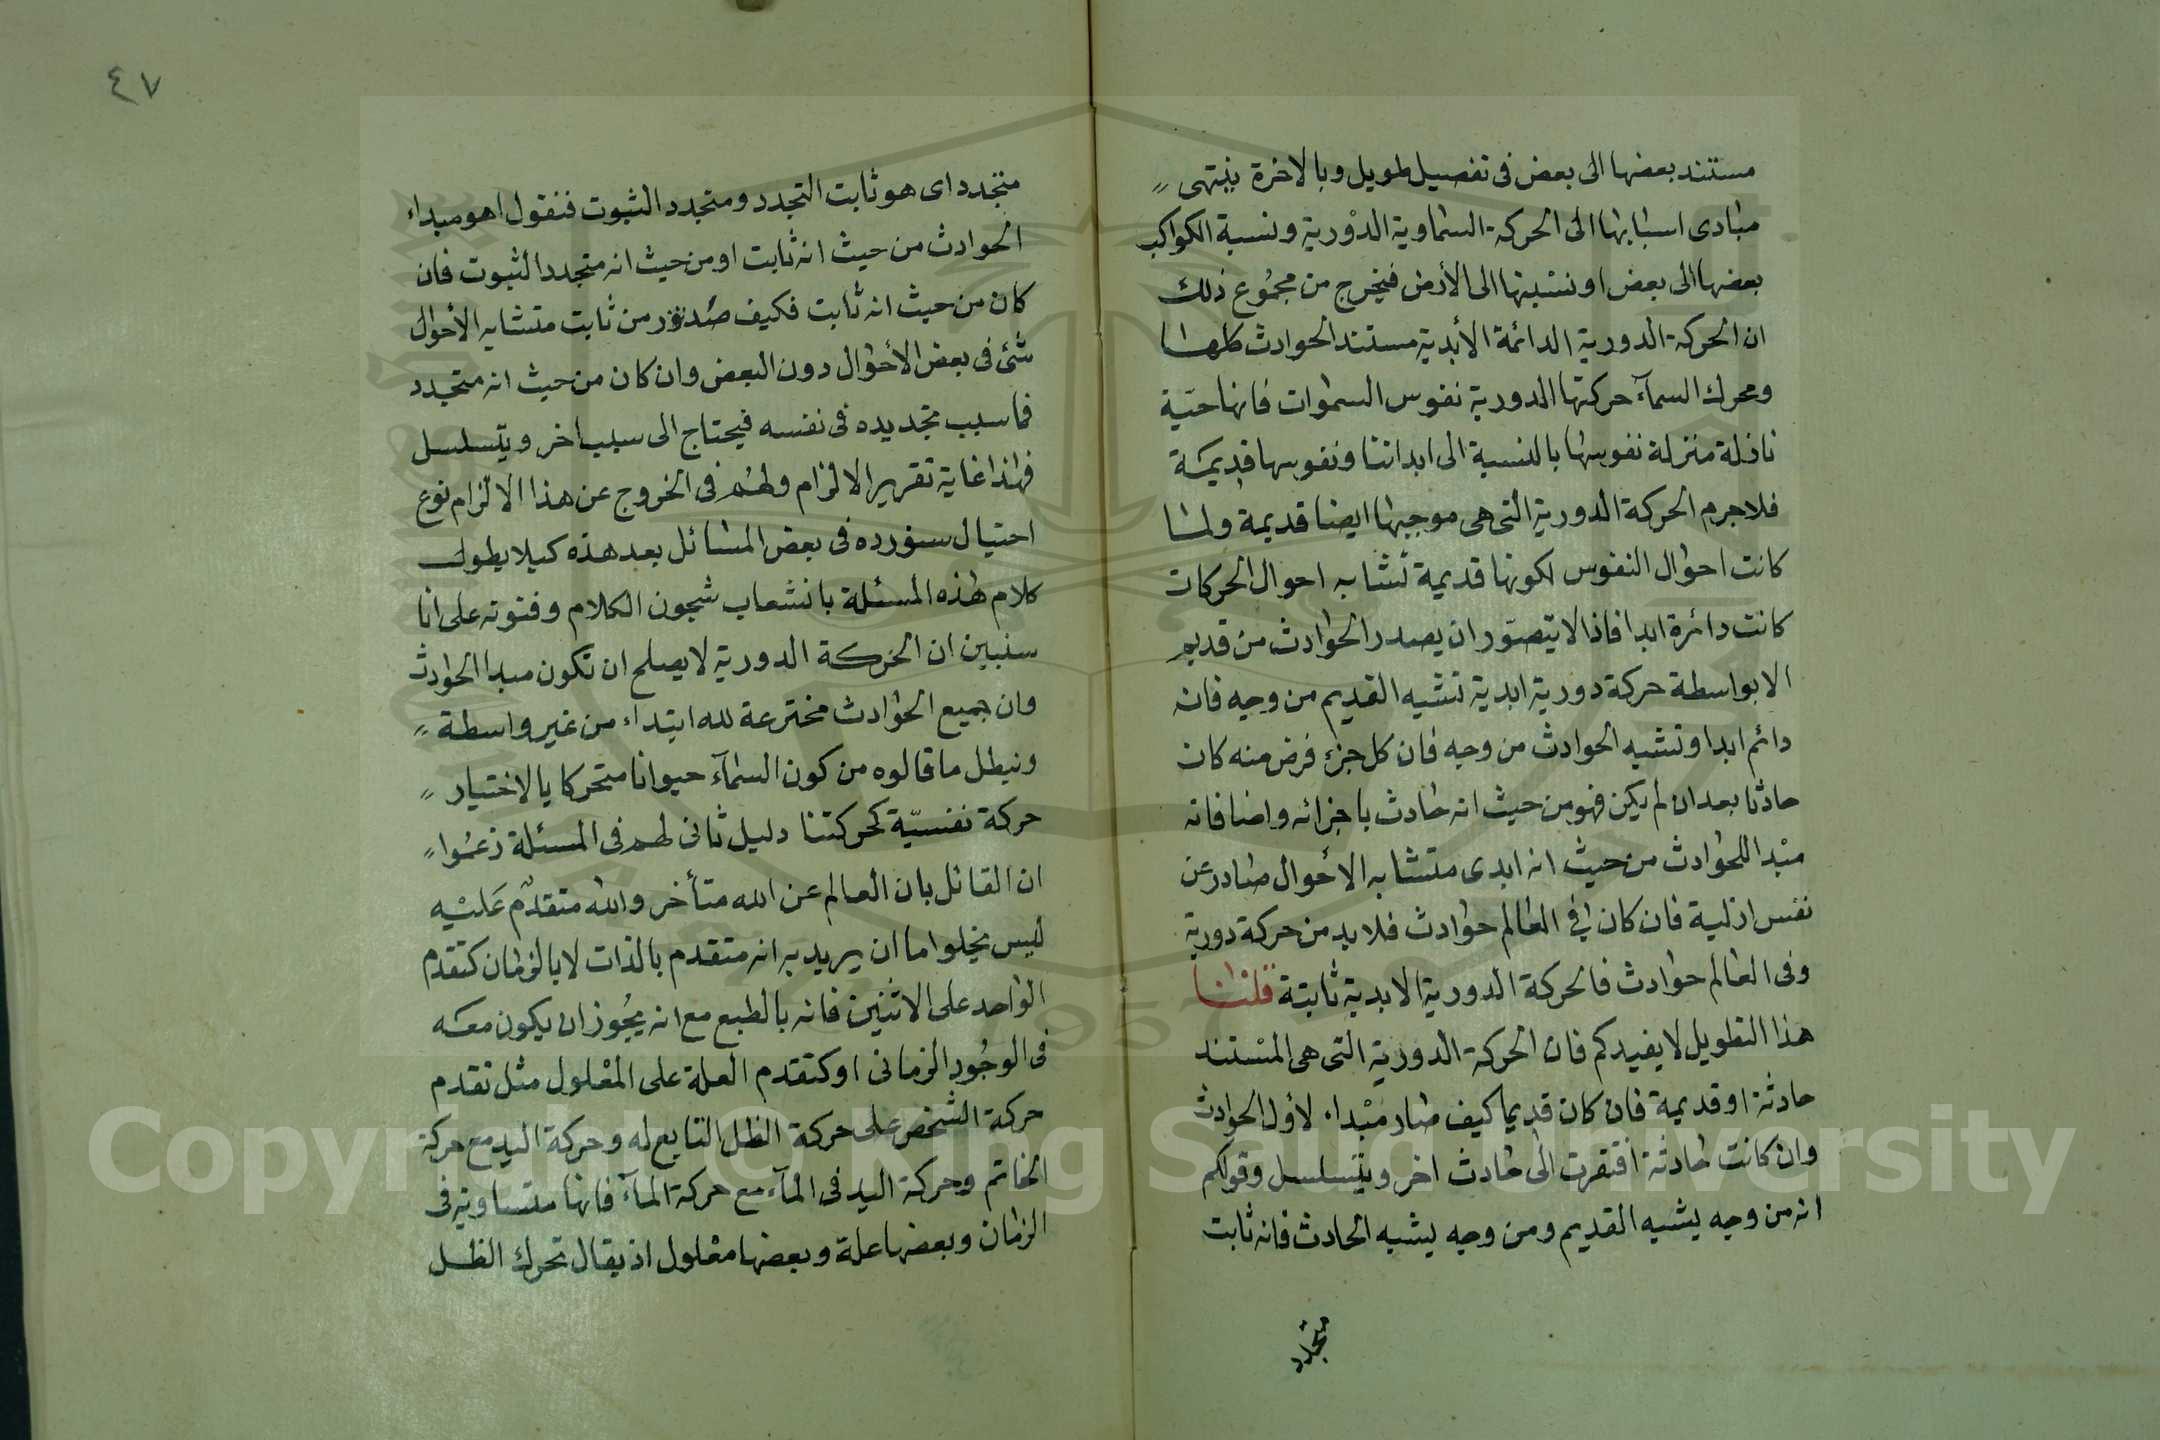 مستند بعضها الى بعض فى تفصيل طويل وبالاخرة ينتهى
مبادى اسبابها الى الحركة السماوية الدورية ونسبة الكواكب
بعضها الى بعض او نسبتها الى الأرض فيخرج من مجموع ذلك
ان الحركة الدورية الدائمة الأبدية مستند الحوادث كلها
ومحرك السمآء حركتها الدورية نفوس السموات فانها حية
نازلة منزلة نفوسها بالنسبة الى ابداننا ونفوسها قديمة
فلا جرم الحركة الدورية التى هى موجبها ايضا قديمة ولما
كانت احوال النفوس لكونها قديمة تشابه احوال الحركات
كانت دائرة ابدا فاذا لا يتصور ان يصدر الحوادث من قديم
الا بواسطة حركة دورية ابدية تشبه القديم من وجه فانه
دائم ابدا وتشبه الحوادث من وجه فان كل جزء فرض منه كان
حادثا بعد ان لم يكن فهو من حيث انه حادث باجزائه واضافاته
مبدا للحوادث من حيث انه ابدى متشابه الأحوال صادر عن
نفس ازلية فان كان فى العالم حوادث فلا بد من حركة دورية
وفى العالم حوادث فالحركة الدورية الابدية ثابتة قلنا
هذا التطويل لا يفيدكم فان الحركة الدورية التى هى المستند
حادثة او قديمة فان كان قديما كيف صار مبداء لأول الحوادث
وان كانت حادثة افتقرت الى حادث اخر ويتسلسل وقولكم
انه من وجه يشبه القديم ومن وجه يشبه الحادث فانه ثابت
متجدد
٤٧
متجدد اى هو ثابت التجدد ومتجدد الثبوت فنقول اهو مبداء
الحوادث من حيث انه ثابت او من حيث انه متجدد الثبوت فان
كان من حيث انه ثابت فكيف صدر من ثابت متشابه الأحوال
شئ فى بعض الأحوال دون البعض وان كان من حيث انه متجدد
فما سبب تجديده فى نفسه فيحتاج الى سبب اخر ويتسلسل
فهذا غاية تقرير الالزام ولهم فى الخروج عن هذا الالزام نوع
احتيال سنورده فى بعض المسائل بعد هذه كيلا يطول
كلام هذه المسئلة بانشعاب شجون الكلام وفنونه على انا
سنبين ان الحركة الدورية لا يصلح ان تكون مبدا الحوادث
وان جميع الحوادث مخترعة لله ابتداء من غير واسطة
ونبطل ما قالوه من كون السمآء حيوانا متحركا بالاختيار
حركة نفسية كحركتنا دليل ثانى لهم فى المسئلة زعموا
ان القائل بان العالم عن الله متأخر والله متقدم عليه
ليس يخلوا ما ان يريد به انه متقدم بالذات لا بالزمان كتقدم
الواحد على الاثنين فانه بالطبع مع انه يجوز ان يكون معه
فى الوجود الزمانى او كتقدم العلة على المعلول مثل تقدم
حركة الشخص على حركة الظل التابع له وحركة اليد مع حركة
الخاتم وحركة اليد فى المآء مع حركة المآء فانها متساوية فى
الزمان وبعضها علة وبعضها معلول اذ يقال تحرك الظل
Copyright © King Saud University
1957